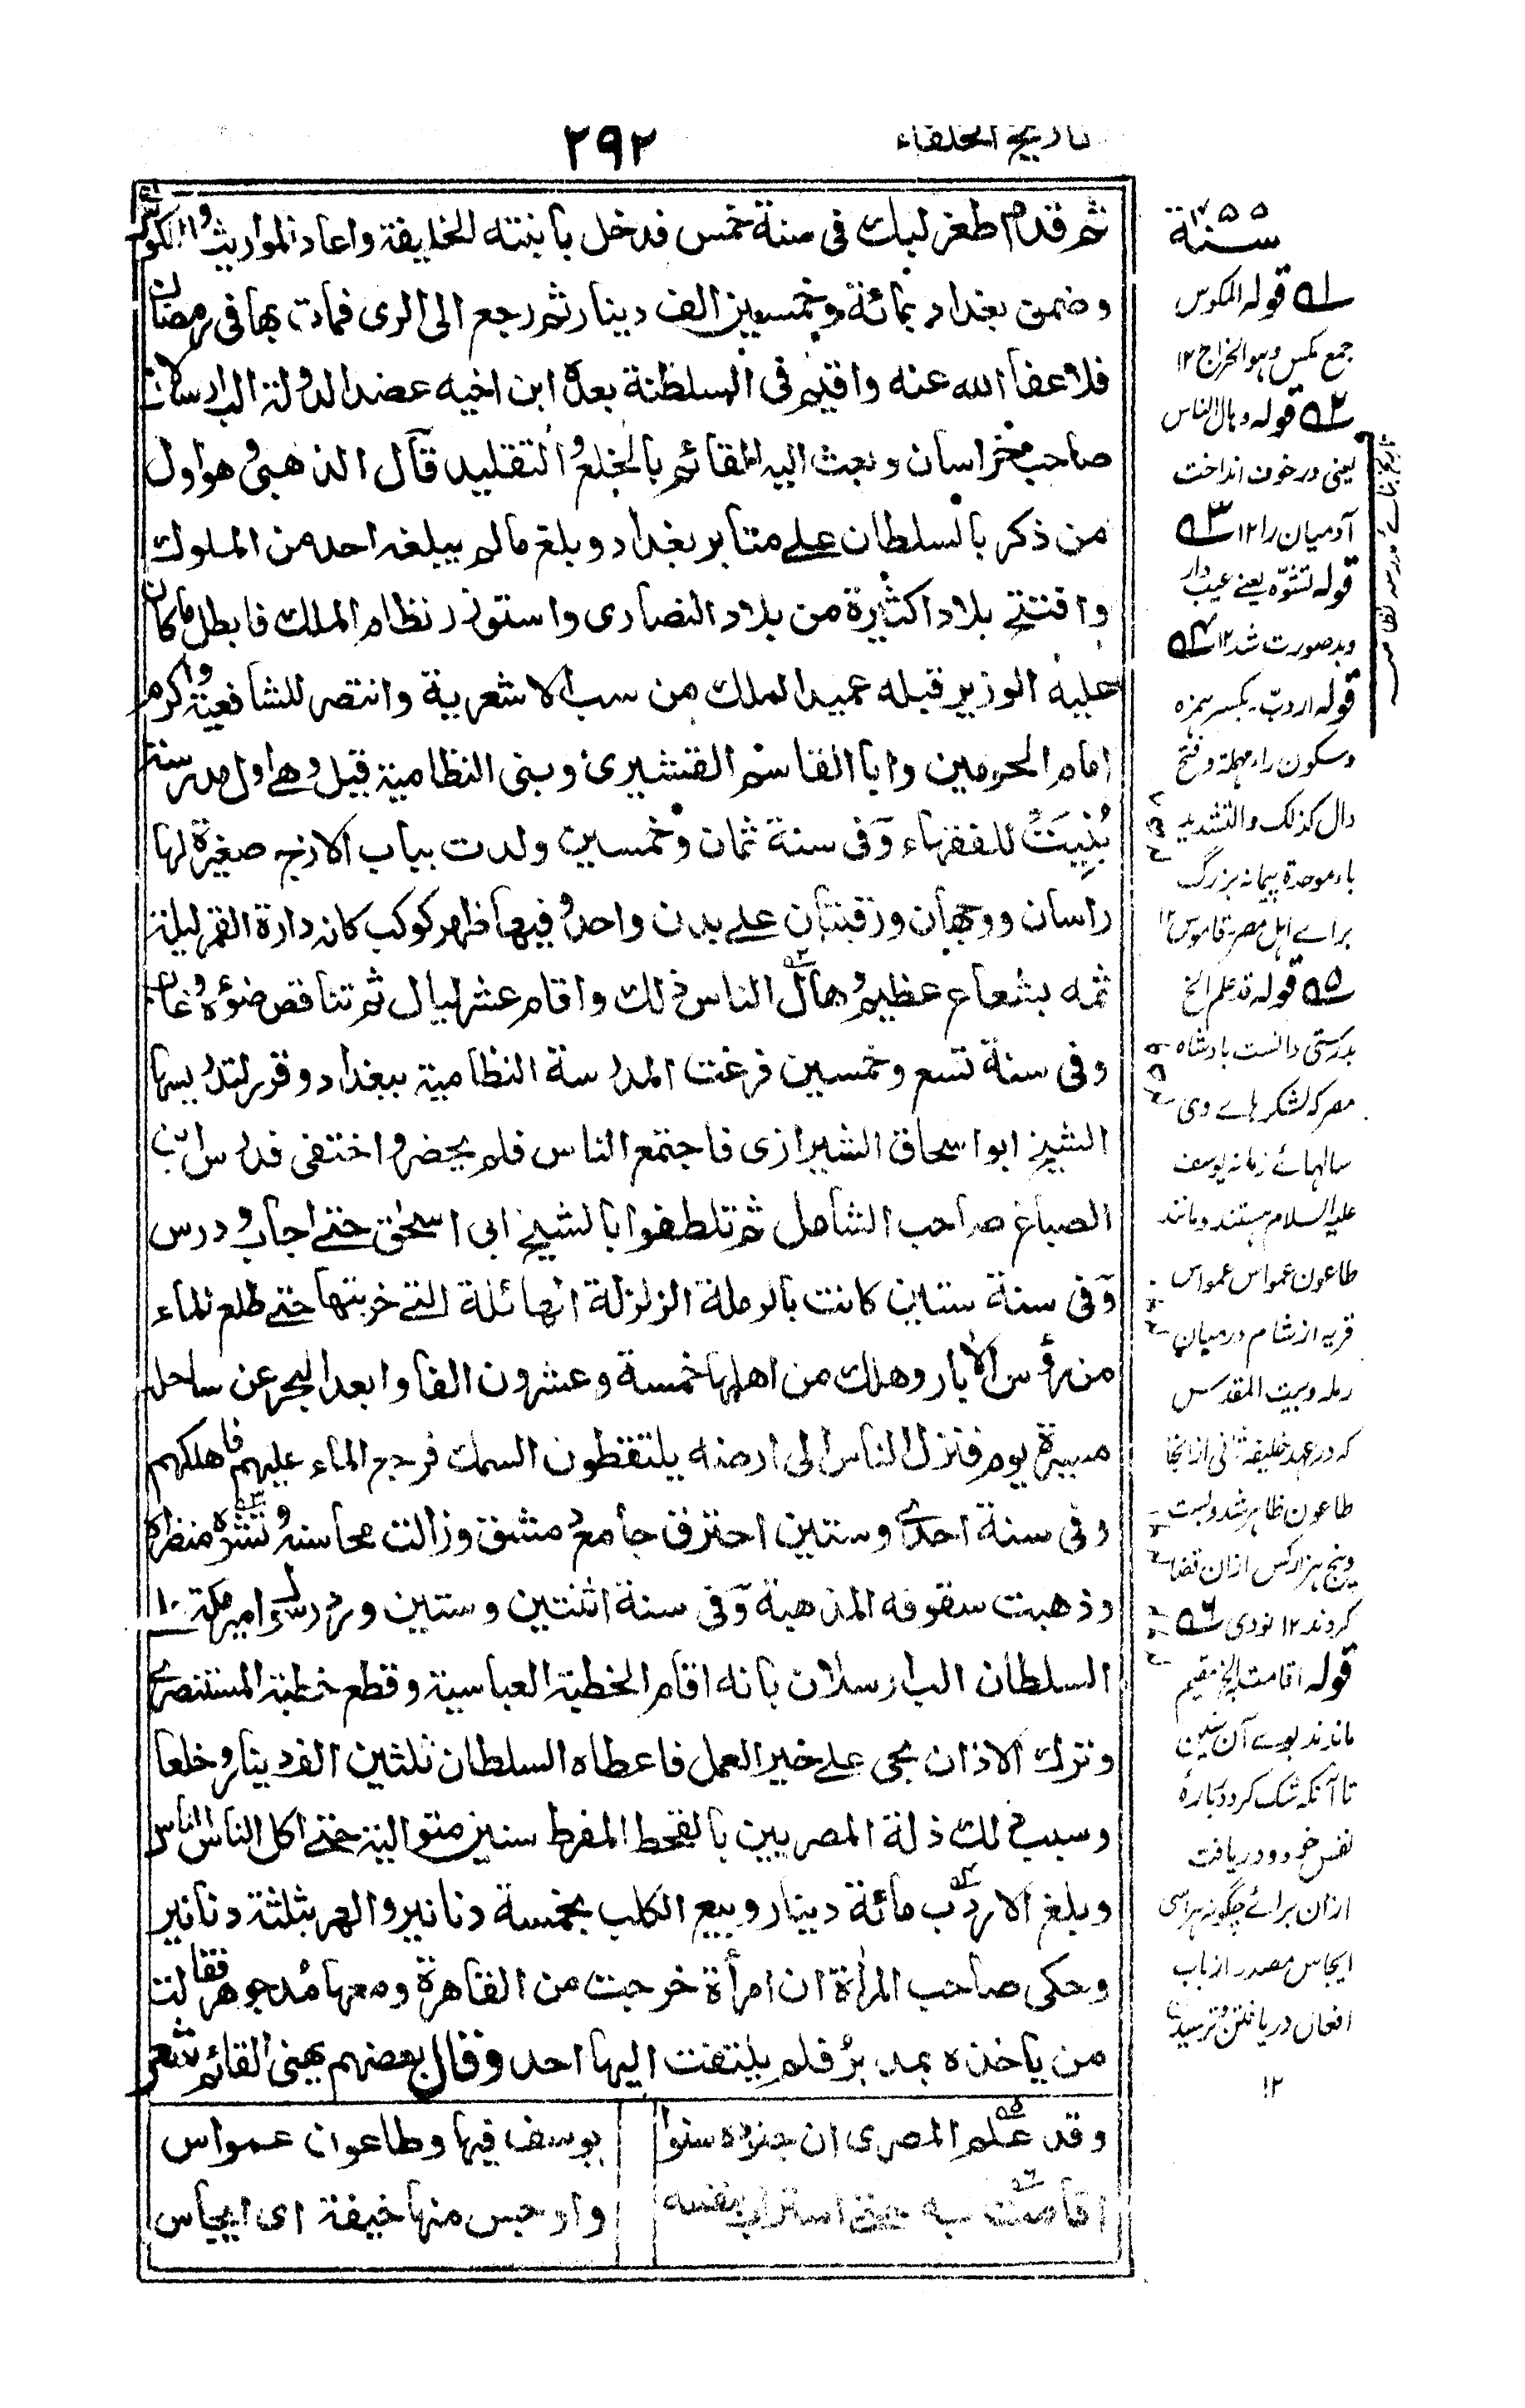 تاريخ الخلفاء
٢٩٢
ثم قدم طغرلبك فى سنة خمس فدخل بابنته الخليفة واعاد المواريث والمكوس
وضمن بغداد بمائة وخمسين الف دينار ثم رجع الى الرى فمات بها فى رمضان
فلا عفا الله عنه واقيم فى السلطنة بعده ابن اخيه عضد الدولة الب ارسلان
صاحب خراسان وبعث اليه القائم بالخلع والتقليد قال الذهبى وهو اول
من ذكر بالسلطان على منابر بغداد وبلغ مالم يبلغه احد من الملوك
وافتتح بلادا كثيرة من بلاد النصارى واستوزر نظام الملك فابطل ما كان
عليه الوزير قبله عميد الملك من سب الاشعرية وانتصر للشافعية واكرم
امام الحرمين وابا القاسم القشيرى وبنى النظامية قيل وهى اول مدرسة
بُنِيَتْ للفقهاء وفى سنة ثمان وخمسين ولدت بباب الازج صغيرة لها
راسان ووجهان ورقبتان على بدن واحد وفيها ظهر كوكب كانه دارة القمر ليلة
تمه بشعاع عظيم وهال الناس ذلك واقام عشر ليال ثم تناقص ضوؤه وغاب
وفى سنة تسع وخمسين فرغت المدرسة النظامية ببغداد وقرر لتدريسها
الشيخ ابو اسحاق الشيرازى فاجتمع الناس فلم يحضر واختفى فدرس ابن
الصباغ صاحب الشامل ثم تلطفوا بالشيخ ابى اسحٰق حتى اجاب ودرس
وفى سنة ستين كانت بالرملة الزلزلة الهائلة التى خربتها حتى طلع الماء
من رؤس الآبار وهلك من اهلها خمسة وعشرون الفا وابعد البحر عن ساحله
مسيرة يوم فنزل الناس الى ارضه يلتقطون السمك فرجع الماء عليهم فاهلكهم
وفى سنة احدى وستين احترق جامع دمشق وزالت محاسنه وتشوه منظره
وذهبت سقوفه المذهبة وفى سنة اثنتين وستين ورد رسول امير مكة الى
السلطان الب ارسلان بانه اقام الخطبة العباسية وقطع خطبة المستنصر
وترك الاذان بحى على خير العمل فاعطاه السلطان ثلثين الف دينار وخلعا
وسبب ذلك ذلة المصريين بالقحط المفرط سنين متوالية حتى اكل الناس الناس
وبلغ الاردب مائة دينار وبيع الكلب بخمسة دنانير والهر بثلثة دنانير
وحكى صاحب المرأة ان امرأة خرجت من القاهرة ومعها مُد جوهر فقالت
من ياخذه بمد برّ فلم يلتفت اليها احد وقال بعضهم يهنى القائم شعر
وقد علم المصرى ان جنوده سنوا
يوسف فيها وطاعون عمواس
اقامت به حتى استراب بنفسه
واوجس منها خيفة اى ايجاس
سنة
٤٥٥
٥١ قوله المكوس
جمع مكس وهو الخراج ١٢
٥٢ قوله وهال الناس
يعنى در خون انداخت
آدميان را ١٢ ٥٣
قوله تشوّه يعنے عيب دار
وبد صورت شد ١٢ ٥٤
قوله اردبّ بكسر همزه
وسكون راء مهملة وفتح
دال كذلك والتشديد
باء موحدة پيمانه بزرگ
براے اهل مصر قاموس ١٢
٥٥ قوله قد علم الخ
بدرستى دانست بادشاه
مصر كه لشكرهاے وى
سالهائے زمانه يوسف
عليه السلام هستند ومانند
طاعون عمواس عمواس
قريه از شام درميان
رمله وبيت المقدس
كه در عهد خليفه ثانى از انجا
طاعون ظاهر شد وبست
وپنج هزار كس ازان قضا
كردند ١٢ نووى ٥٦
قوله اقامت الخ مقيم
ماندند بوے آن سنين
تا آنكه شك كرد دربارهٔ
نفس خود ودريافت
ازان برائے چگونه هراسى
ايجاس مصدر از باب
افعال دريافتن وترسيدن
١٢